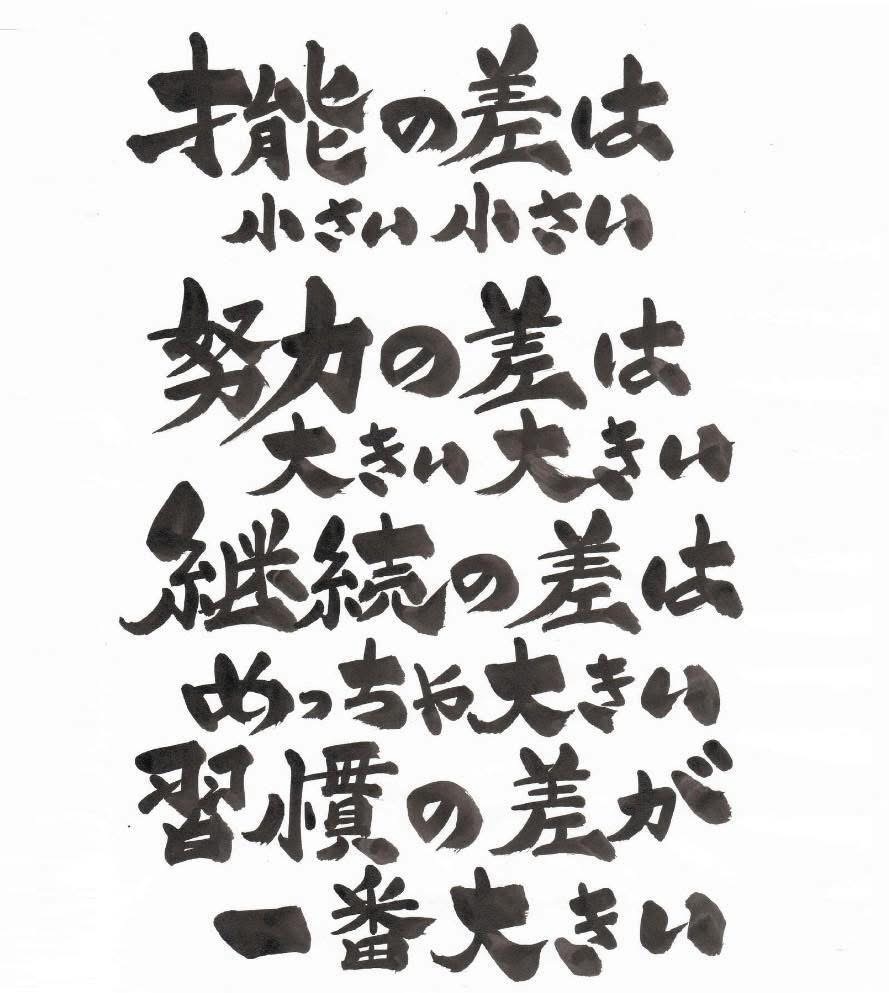 才能の差は
小さい 小さい
努力の差は
大きい 大きい
継続の差は
めっちゃ大きい
習慣の差が
一番大きい